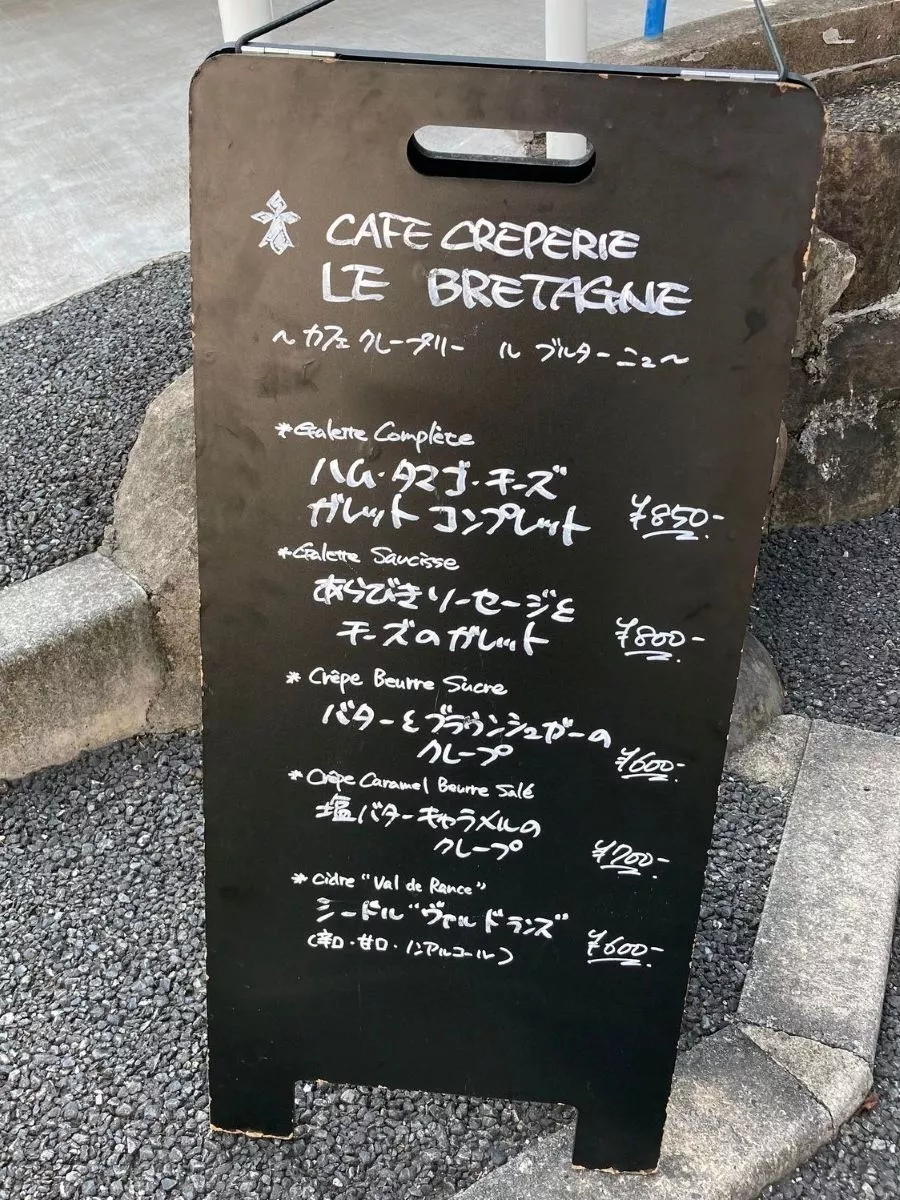 CAFE CREPERIE
LE BRETAGNE
~カフェ クレープリー ル ブルターニュ~
*Galette Complète
ハム・タマゴ・チーズ
ガレット コンプレット ¥850-
*Galette Saucisse
あらびきソーセージと
チーズのガレット ¥800-
* Crêpe Beurre Sucre
バターとブラウンシュガーの
クレープ ¥600-
* Crêpe Caramel Beurre Salé
塩バターキャラメルの
クレープ ¥700-
* Cidre "Val de Rance"
シードル"ヴァルドランス"
(辛口・甘口・ノンアルコール) ¥600-